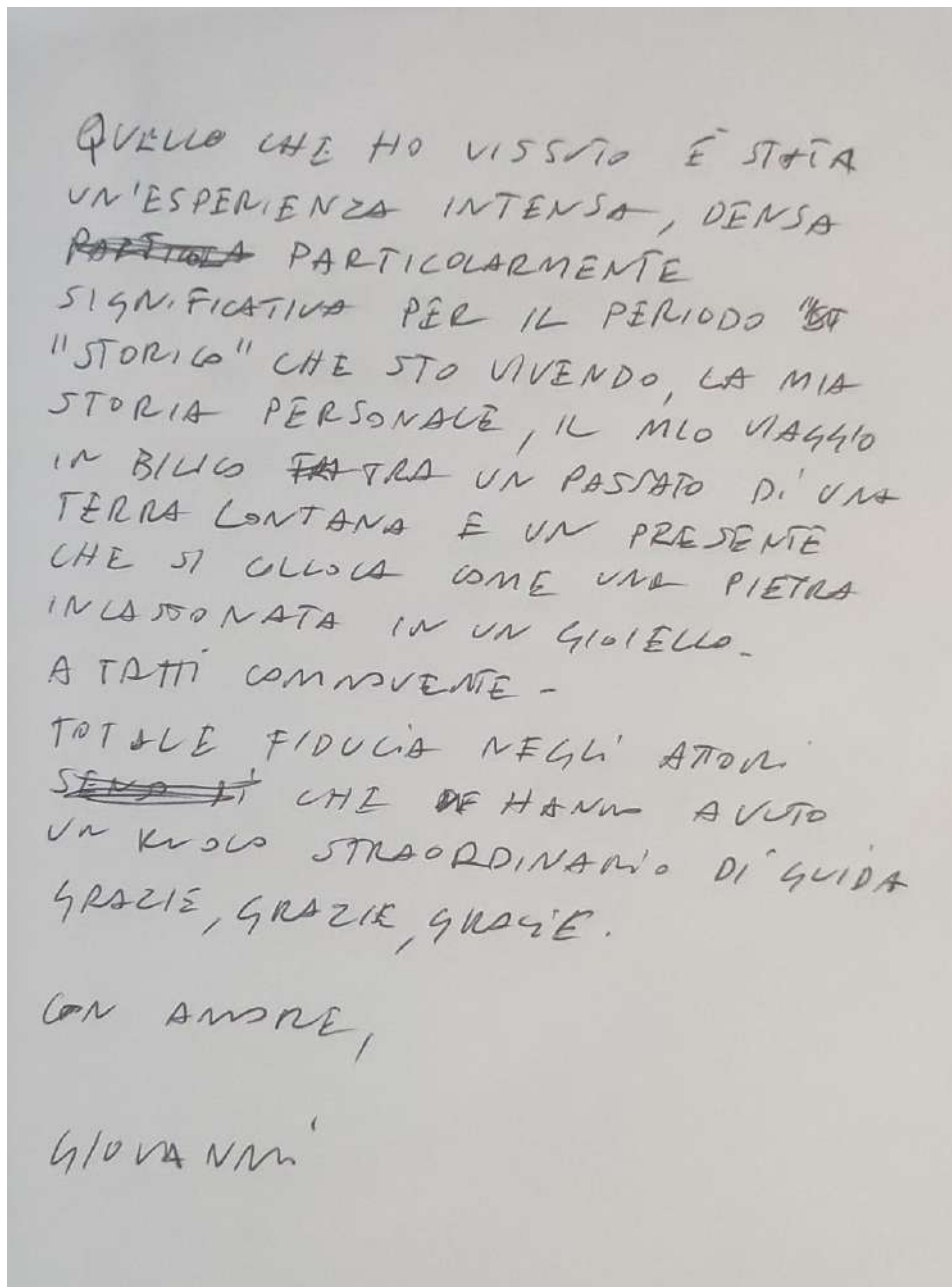 QUELLO CHE HO VISSUTO È STATA
UN'ESPERIENZA INTENSA, DENSA
PARTICOLARMENTE
SIGNIFICATIVA PER IL PERIODO
"STORICO" CHE STO VIVENDO, LA MIA
STORIA PERSONALE, IL MIO VIAGGIO
IN BILICO TRA UN PASSATO DI UNA
TERRA LONTANA E UN PRESENTE
CHE SI COLLOCA COME UNA PIETRA
INCASTONATA IN UN GIOIELLO.
A TRATTI COMMOVENTE -
TOTALE FIDUCIA NEGLI ATTORI
CHE HANNO AVUTO
UN RUOLO STRAORDINARIO DI GUIDA
GRAZIE, GRAZIE, GRAZIE.
CON AMORE,
GIOVANNI